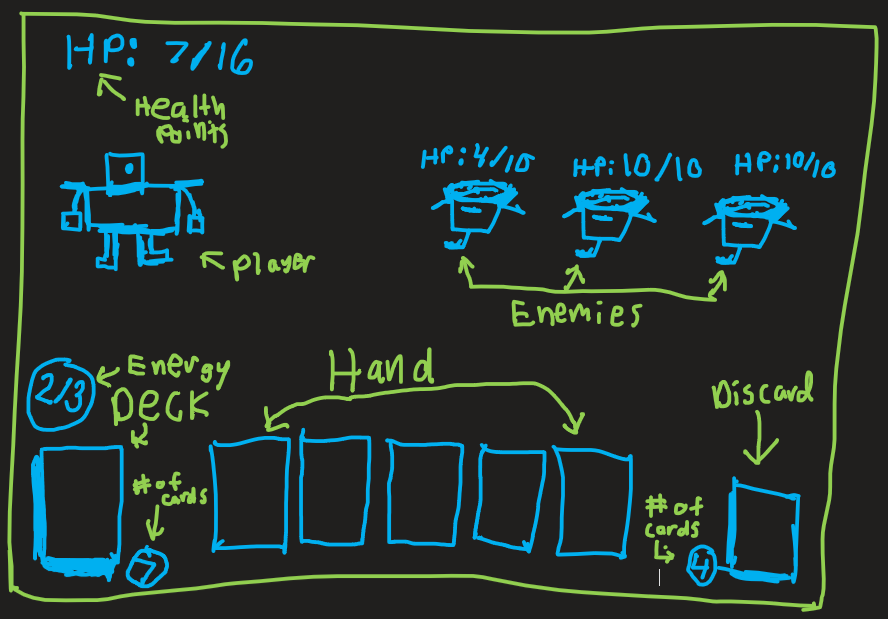 HP: 7/16
Health
Points
HP: 4/10
HP: 10/10
HP: 10/10
Player
Enemies
2/3
Energy
DECK
Hand
Discard
# of
cards
7
# of
cards
4